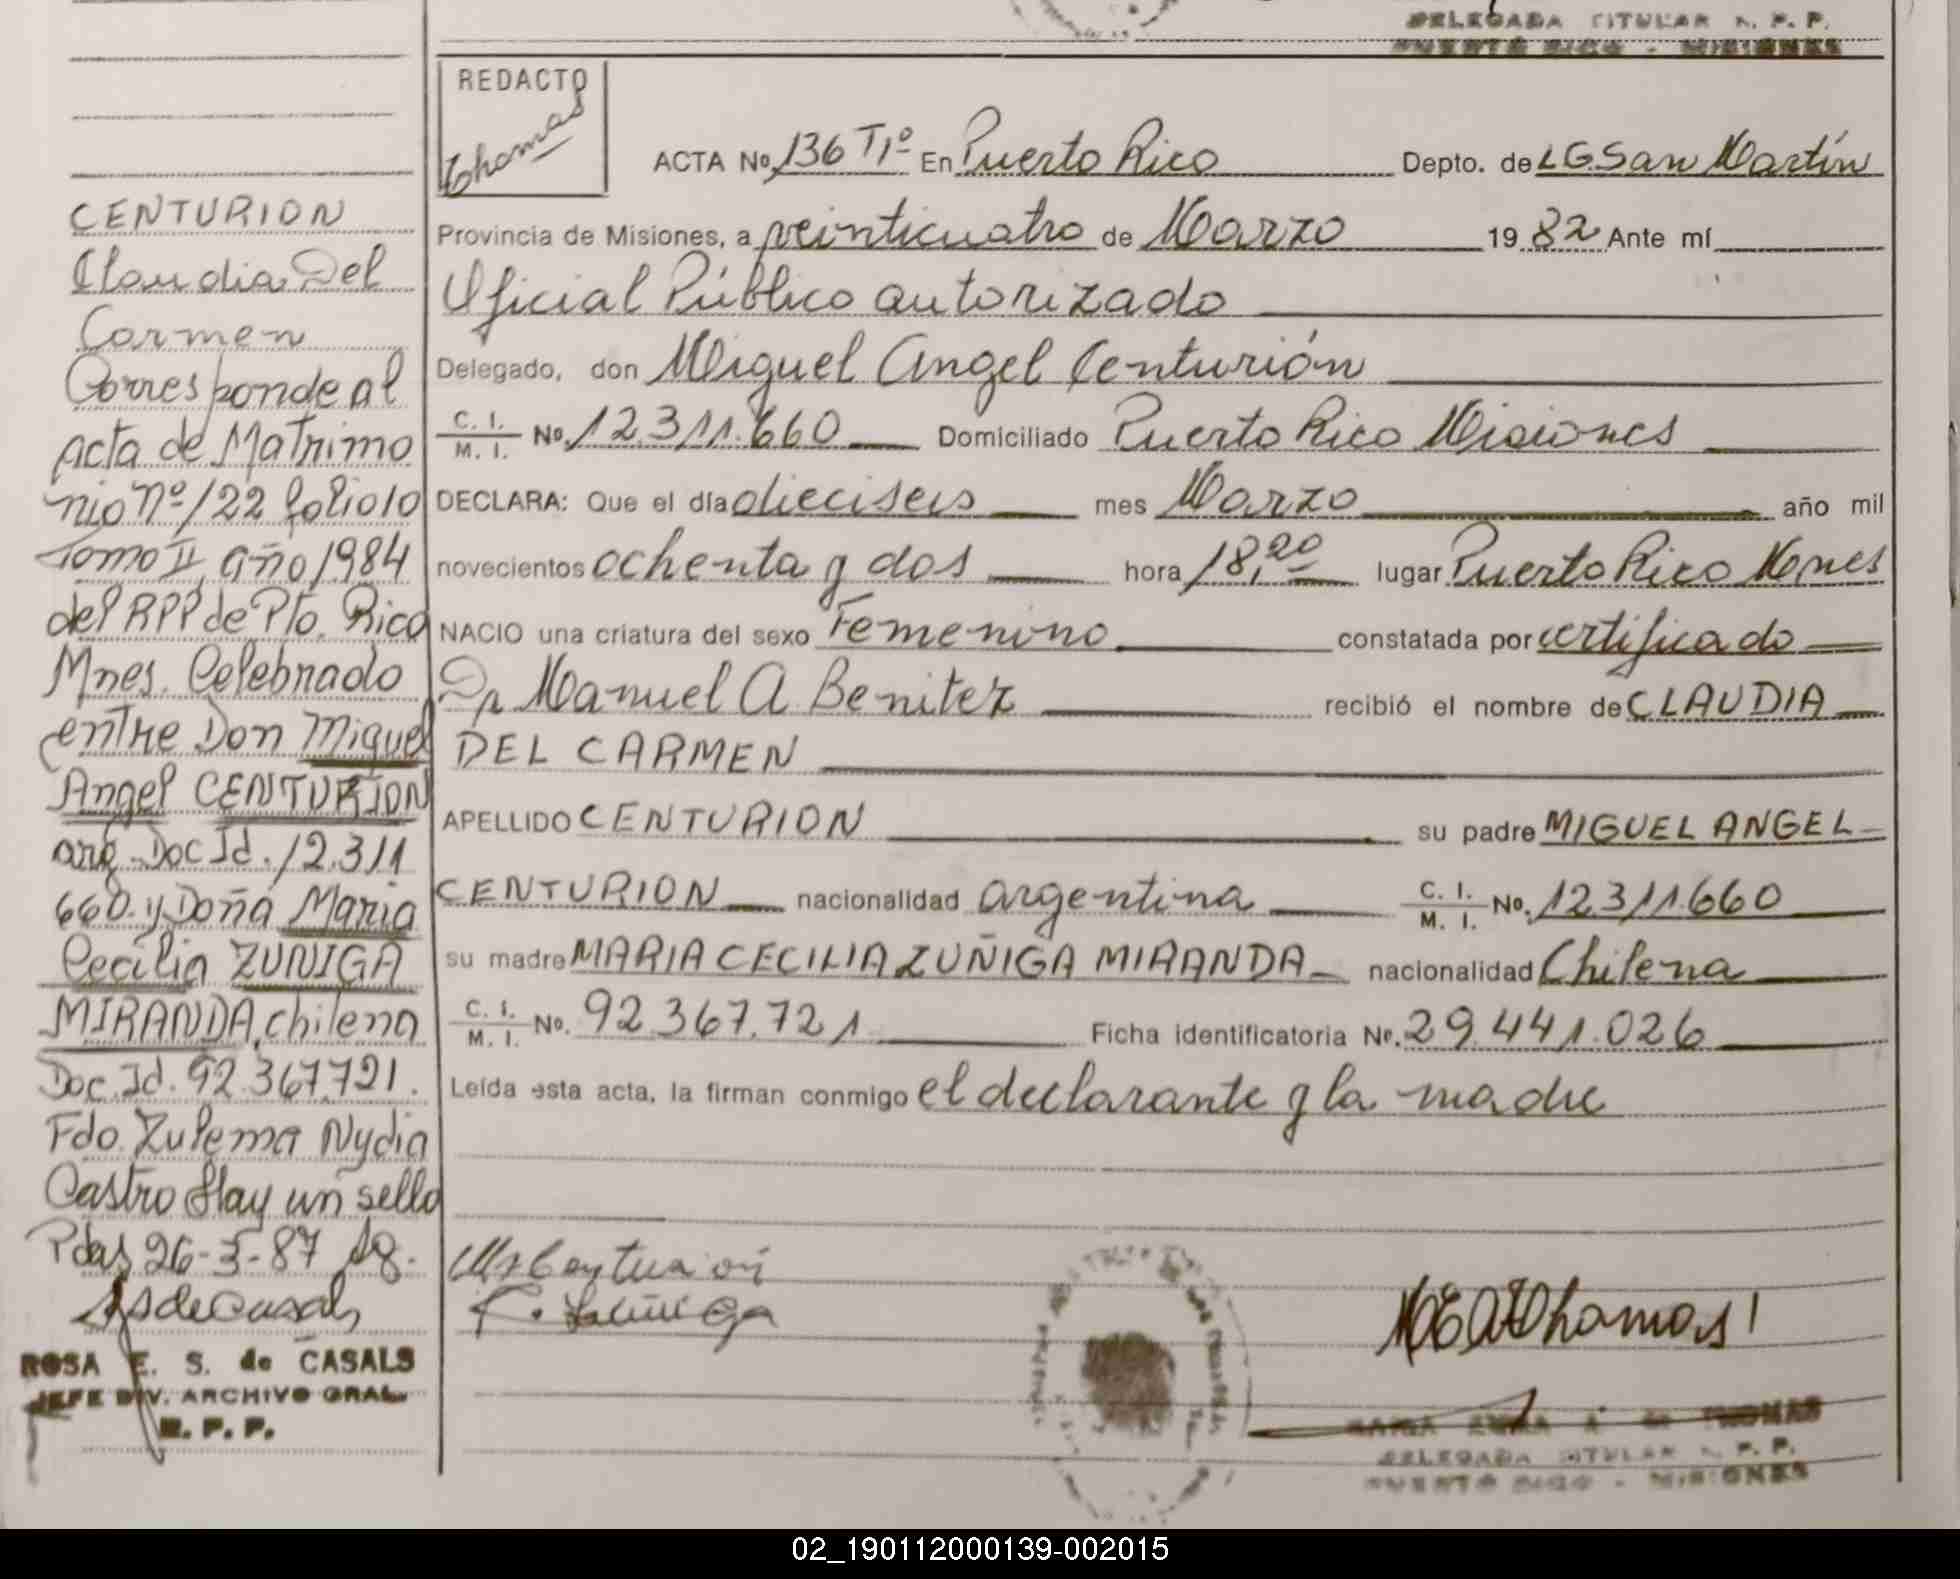 DELEGADA TITULAR R. P. P.
PUERTO RICO - MISIONES
REDACTO
Thomas
ACTA No 136 T1º En Puerto Rico Depto. de L G. San Martín
Provincia de Misiones, a veinticuatro de Marzo 19 82 Ante mí
Oficial Público autorizado
Delegado, don Miguel Angel Centurión
C. I. / M. I. No. 12.311.660 Domiciliado Puerto Rico Misiones
DECLARA: Que el día dieciseis mes Marzo año mil
novecientos ochenta y dos hora 18,20 lugar Puerto Rico Mnes
NACIO una criatura del sexo Femenino constatada por certificado
Dr Manuel A Benitez recibió el nombre de CLAUDIA
DEL CARMEN
APELLIDO CENTURION su padre MIGUEL ANGEL
CENTURION nacionalidad argentina C. I. / M. I. No. 12311.660
su madre MARIA CECILIA ZUÑIGA MIRANDA nacionalidad Chilena
C. I. / M. I. No. 92.367.721 Ficha identificatoria No. 29.441.026
Leída esta acta, la firman conmigo el declarante y la madre
CENTURION
Claudia Del
Carmen
Corresponde al
acta de Matrimo
nio nº 122 folio 10
Tomo II, año 1984
del RPP de Pto. Rico
Mnes. Celebrado
entre Don Miguel
Angel CENTURION
arg. Doc Id. 12.311
660. y Doña Maria
Cecilia ZUNIGA
MIRANDA, chilena
Doc. Id. 92.367.721.
Fdo. Zulema Nydia
Castro Hay un sello
Pdas 26-5-87
ROSA E. S. de CASALS
JEFE DIV. ARCHIVO GRAL.
R. P. P.
C. Zúñiga
THOMAS
DELEGADA TITULAR R. P. P.
PUERTO RICO - MISIONES
02_190112000139-002015